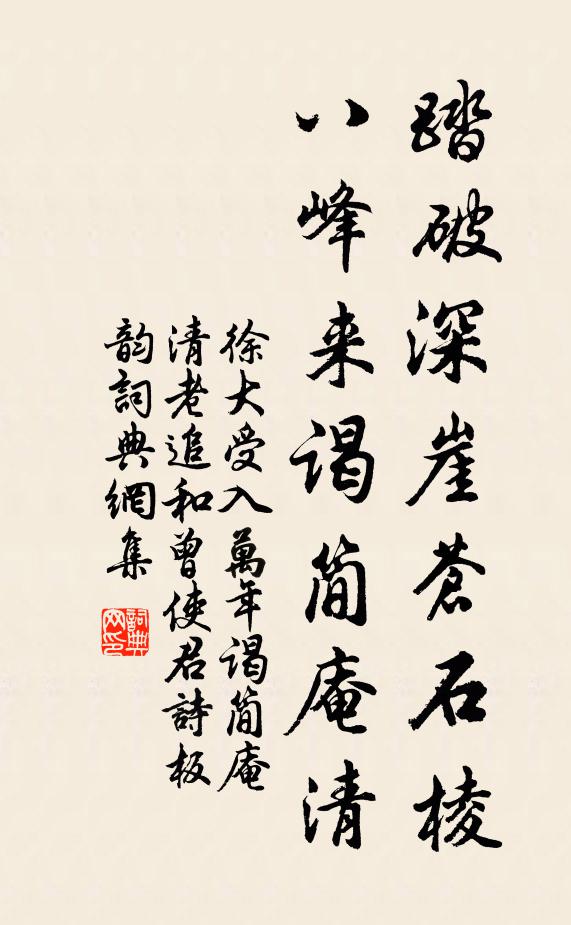 踏破深崖蒼石棱
八峰来謁簡庵清
徐大受入萬年謁簡庵
清老追和曾使君詩板
韵詞典網集
詞典
网印